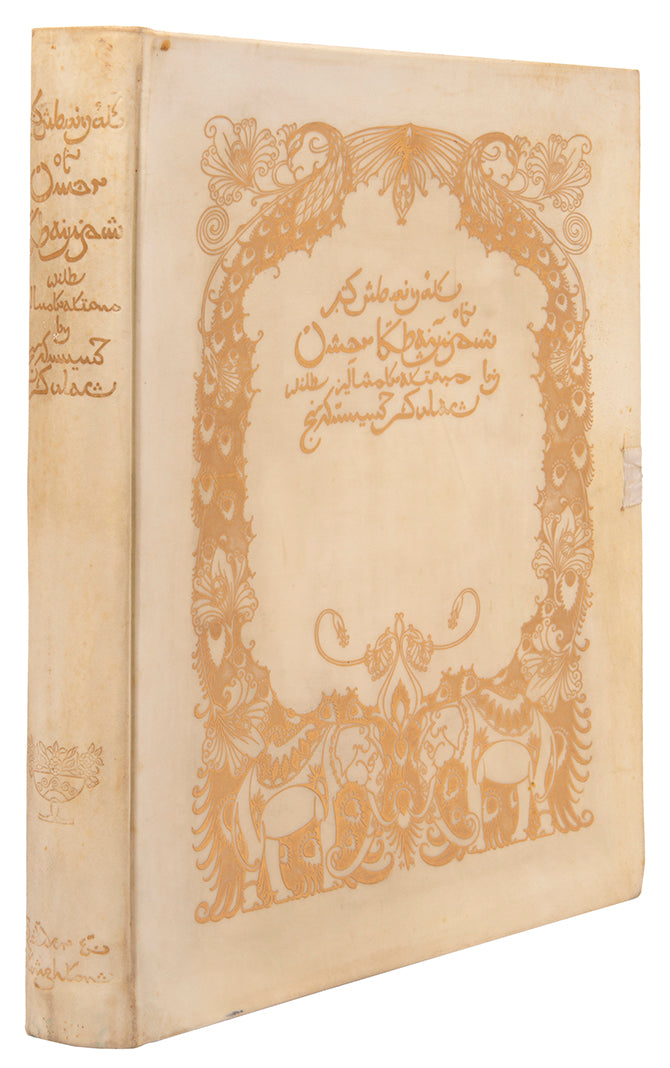 Rubáiyát
of
Omar
Khayyam
with
illustrations
by
Edmund
Dulac
Hodder &
Stoughton
Rubáiyát
of
Omar Khayyam
with illustrations by
Edmund Dulac